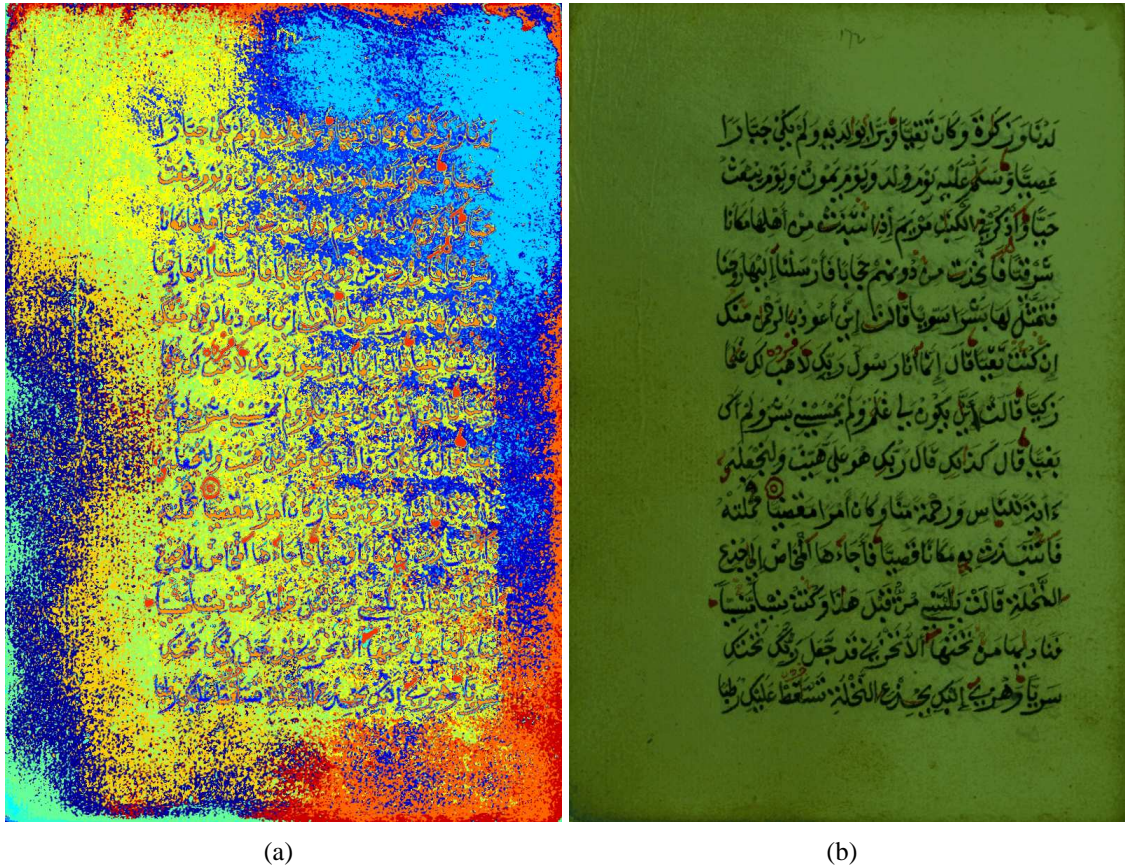 ١٧٢
لدنا وزكوة وكان تقيا وبرا بولديه ولم يكن جبارا
عصيا وسلم عليه يوم ولد ويوم يموت ويوم يبعث
حيا واذكر في الكتب مريم إذ انتبذت من أهلها مكانا
شرقيا فاتخذت من دونهم حجابا فأرسلنا إليها روحنا
فتمثل لها بشرا سويا قالت إني أعوذ بالرحمن منك
إن كنت تقيا قال إنما أنا رسول ربك لأهب لك غلما
زكيا قالت أنى يكون لي غلم ولم يمسسني بشر ولم أك
بغيا قال كذلك قال ربك هو علي هين ولنجعله
ءاية للناس ورحمة منا وكان أمرا مقضيا فحملته
فانتبذت به مكانا قصيا فأجاءها المخاض إلى جذع
النخلة قالت يليتني مت قبل هذا وكنت نسيا منسيا
فناديها من تحتها ألا تحزني قد جعل ربك تحتك
سريا وهزي إليك بجذع النخلة تسقط عليك رطبا
(a)
(b)